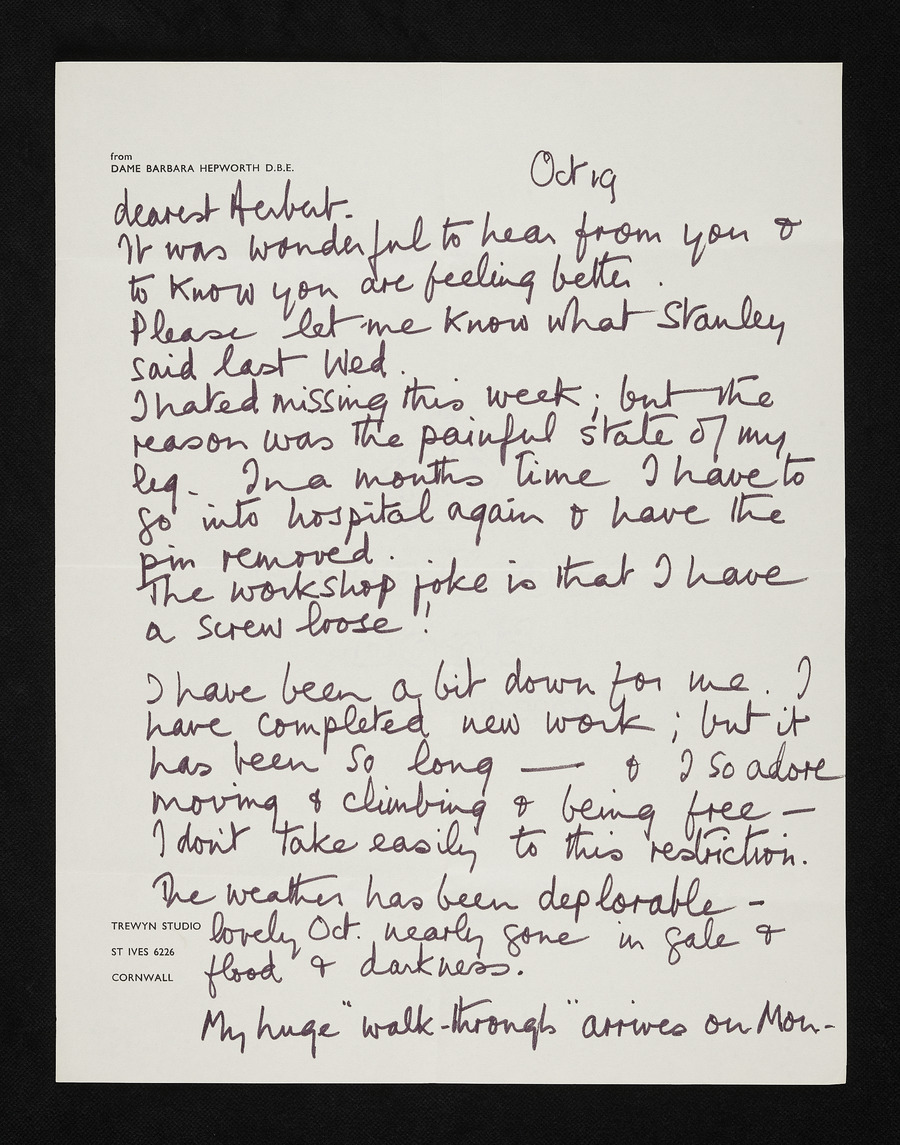 from
DAME BARBARA HEPWORTH D.B.E.
Oct 19
dearest Herbert.
It was wonderful to hear from you &
to know you are feeling better.
Please let me know what Stanley
said last Wed.
I hated missing this week; but the
reason was the painful state of my
leg. In a months time I have to
go into hospital again & have the
pin removed.
The workshop joke is that I have
a screw loose!
I have been a bit down for me. I
have completed new work; but it
has been so long — & I so adore
moving & climbing & being free —
I don't take easily to this restriction.
The weather has been deplorable -
lovely Oct. nearly gone in gale &
flood & darkness.
TREWYN STUDIO
ST IVES 6226
CORNWALL
My huge "walk-through" arrives on Mon-